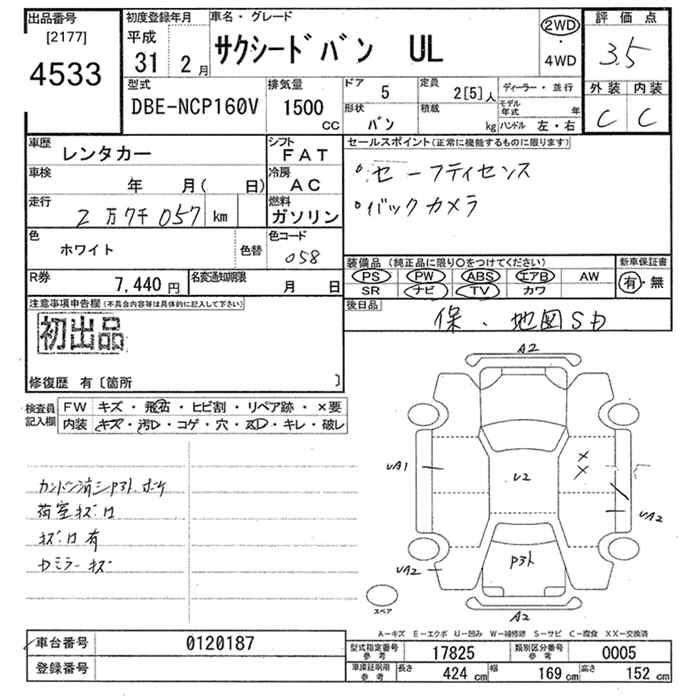 出品番号 [2177] 4533
初度登録年月 平成 31年 2月
車名・グレード サクシードバン UL
2WD・4WD
評価点 3.5
外装 C 内装 C
型式 DBE-NCP160V
排気量 1500 CC
ドア 5
形状 バン
定員 2[5]人
積載 kg
ディーラー・並行
モデル年式 年
ハンドル 左・右
車歴 レンタカー
シフト FAT
車検 年 月( 日)
冷房 AC
走行 2万7千057 km
燃料 ガソリン
色 ホワイト 色替
色コード 058
R券 7,440円
名変通知期限 月 日
セールスポイント(正常に機能するものに限ります)
・セーフティセンス
・バックカメラ
装備品(純正品に限り○をつけてください)
PS PW ABS エアB AW
SR ナビ TV カワ
新車保証書 有・無
後日品 保、地図SD
注意事項申告欄(不具合内容等は具体的に記入して下さい)
初出品
修復歴 有〔箇所 〕
検査員記入欄
FW キズ・飛石・ヒビ割・リペア跡・×要
内装 キズ・汚レ・コゲ・穴・凹・キレ・破レ
荷室キズ凹
キズ凹有
Dミラーキズ
A2
UA1
U2
×
×
UA2
UA2
P外
A2
スペア
A-キズ E-エクボ U-凹み W-補修跡 S-サビ C-腐食 XX-交換済
車台番号 0120187
登録番号
型式指定番号 参考 17825
類別区分番号 参考 0005
車庫証明用 参考 長さ 424 cm 幅 169 cm 高さ 152 cm